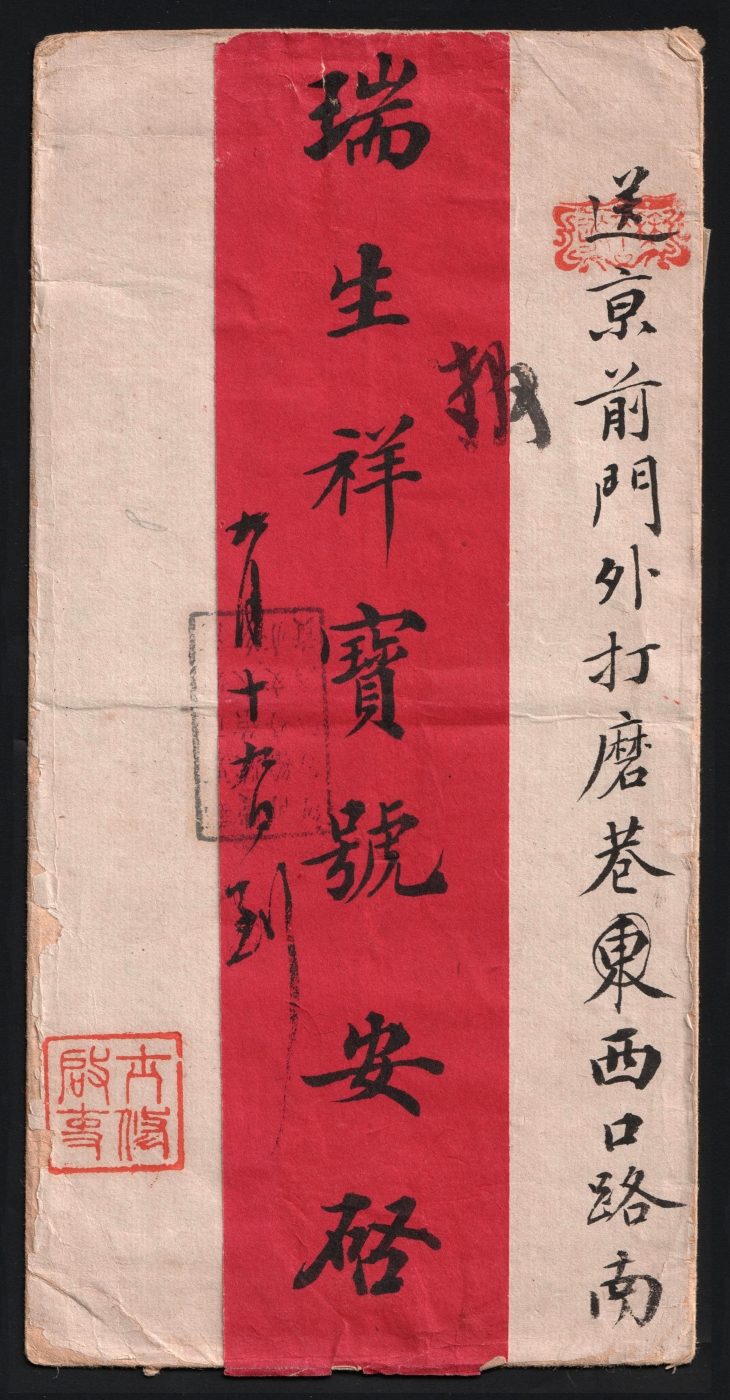 送京前門外打磨巷東西口路南
報
瑞生祥寶號安啓
九月十九日到
啟事